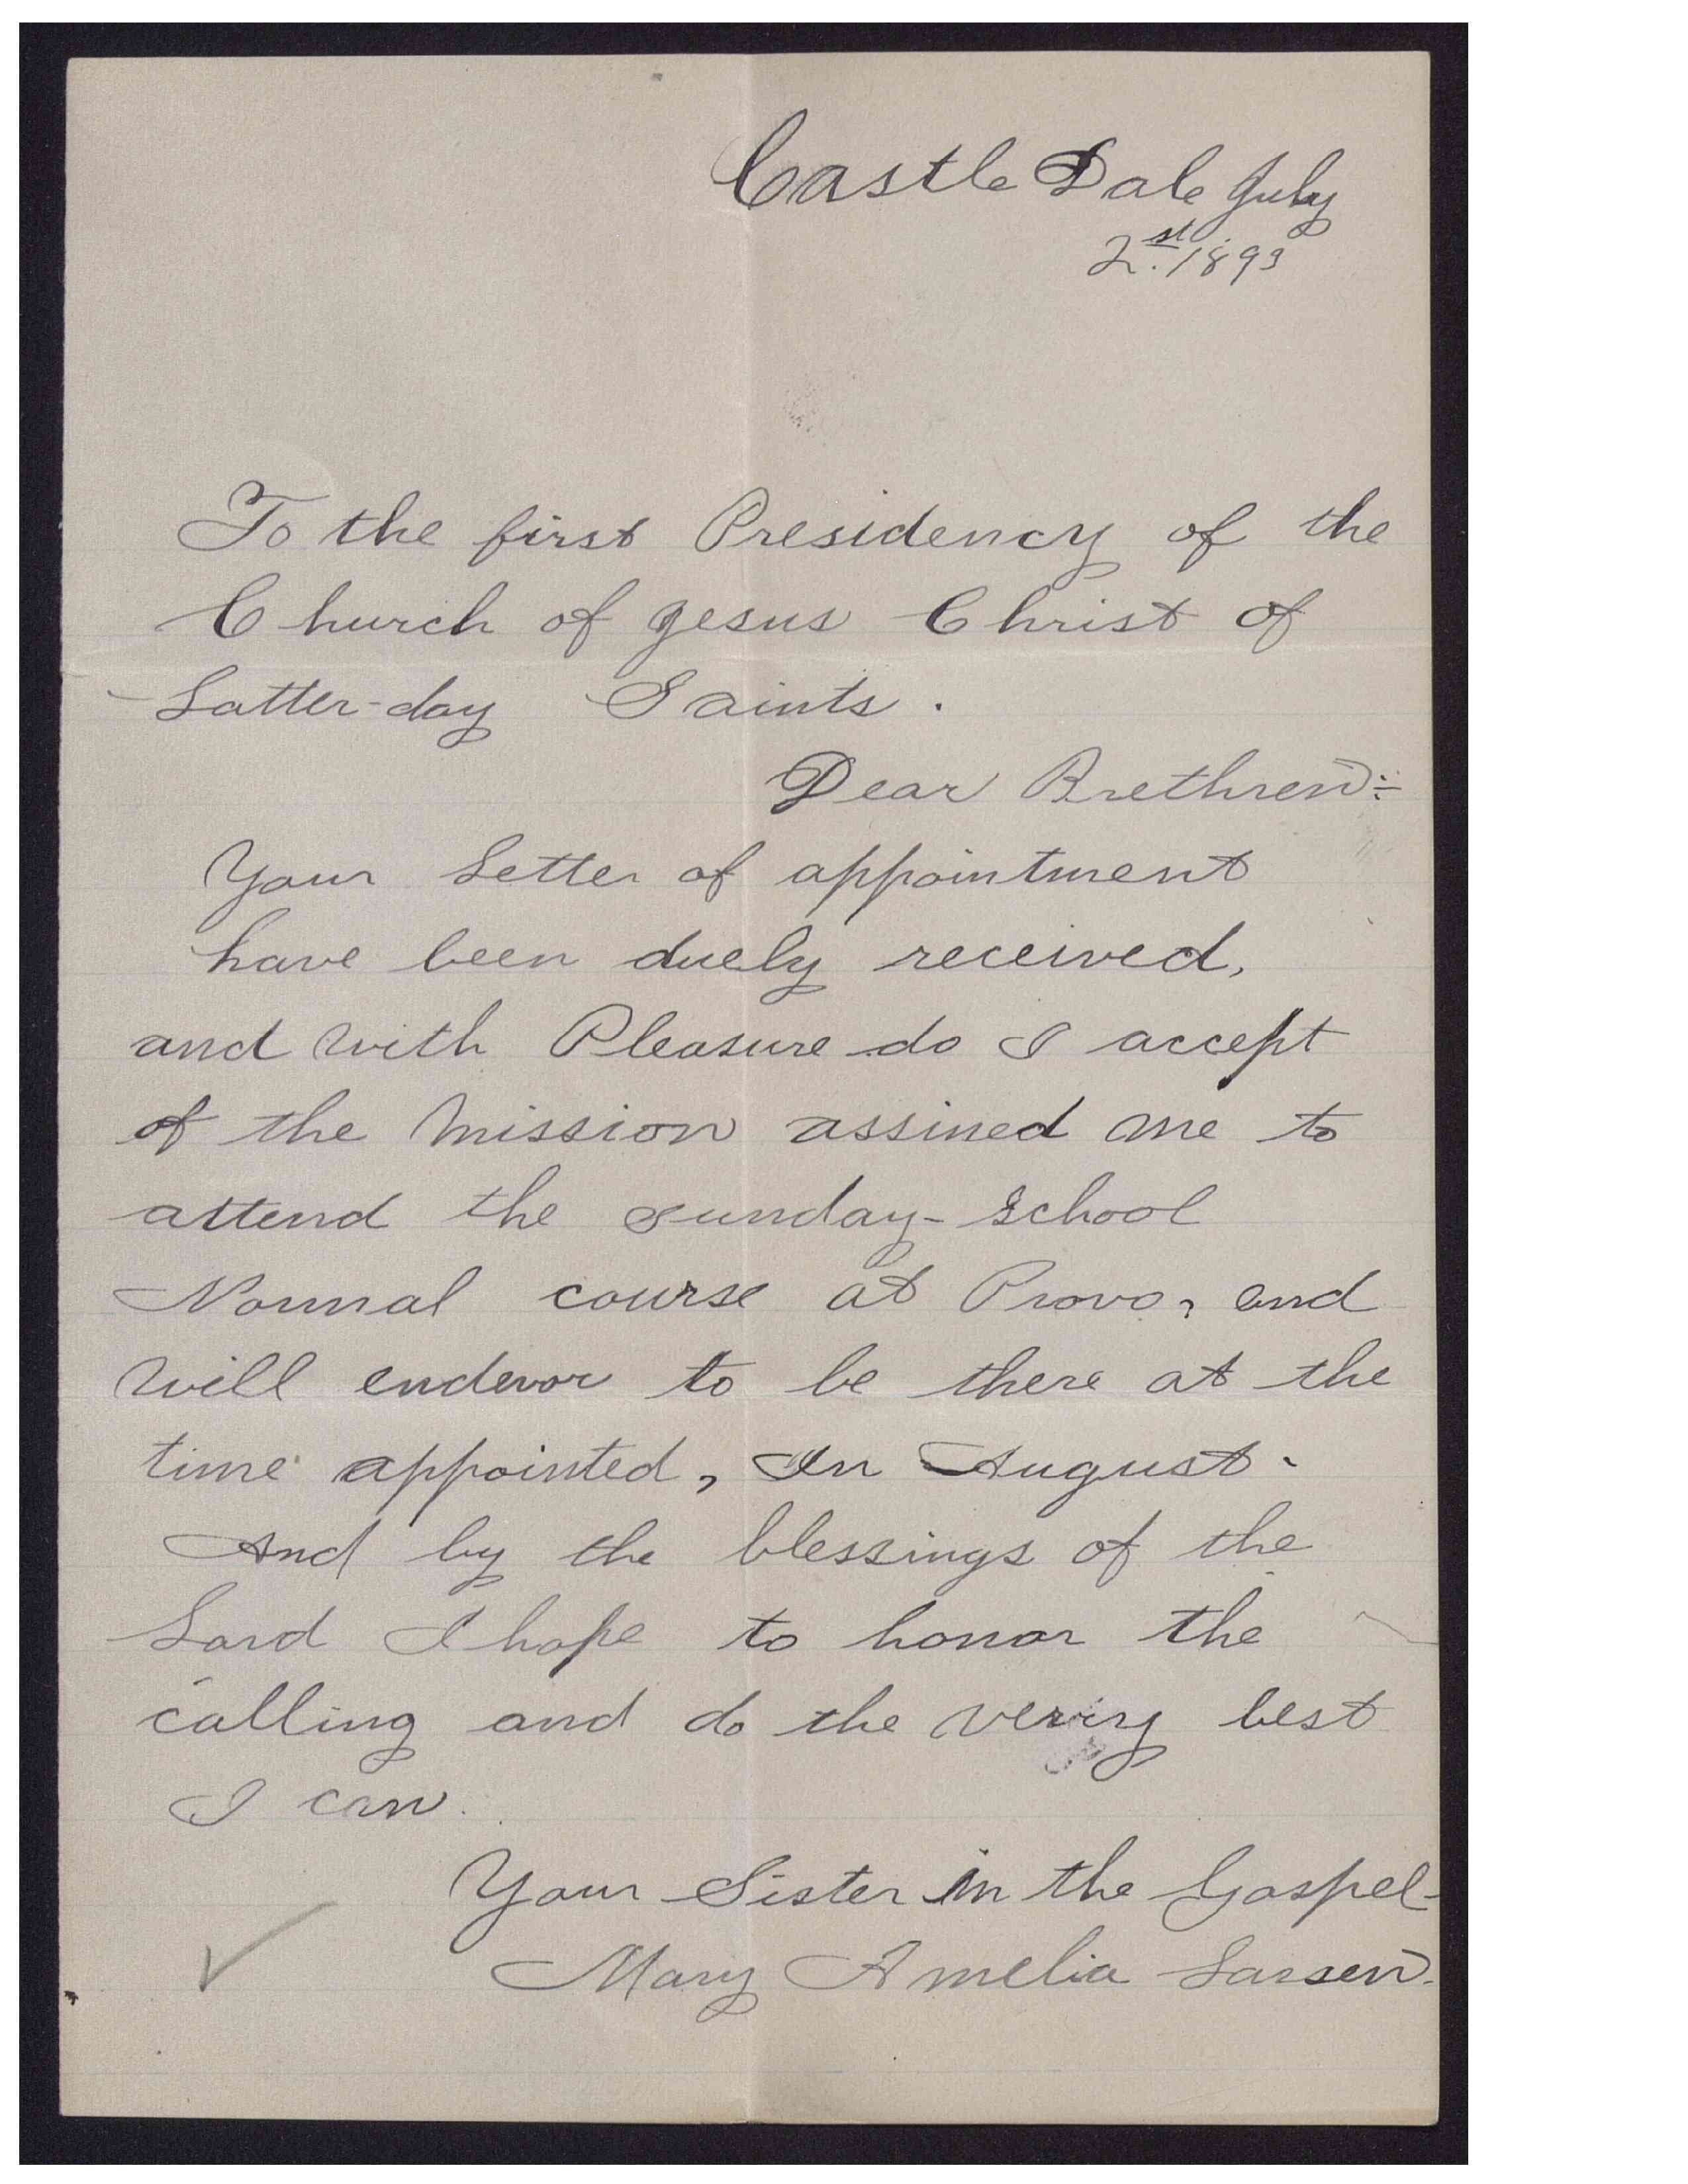 Castle Dale July
2st. 1893
To the first Presidency of the
Church of Jesus Christ of
Latter-day Saints.
Dear Brethren:-
Your Letter of appointment
have been duely received,
and with Pleasure do I accept
of the Mission assined me to
attend the sunday-school
Normal course at Provo, and
will endevor to be there at the
time appointed, In August.
And by the blessings of the
Lord I hope to honor the
calling and do the very best
I can.
Your Sister in the Gospel-
Mary Amelia Larsen.